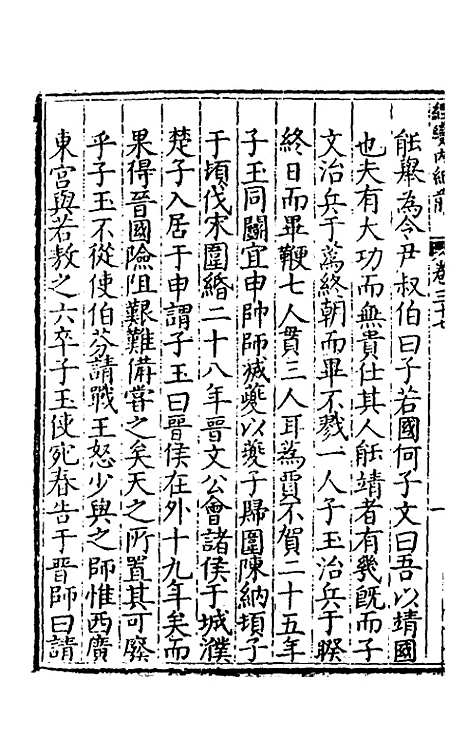 經濟內編前 卷三十七 一
能舉為令尹叔伯曰子若國何子文曰吾以靖國
也夫有大功而無貴仕其人能靖者有幾旣而子
文治兵于蒍終朝而畢不戮一人子玉治兵于睽
終日而畢鞭七人貫三人耳為賈不賀二十五年
子玉同鬭宜申帥師滅夔以夔子歸圍陳納頓子
于頓伐宋圍緡二十八年晉文公會諸侯于城濮
楚子入居于申謂子玉曰晉侯在外十九年矣而
果得晉國險阻艱難備嘗之矣天之所置其可廢
乎子玉不從使伯芬請戰王怒少與之師惟西廣
東宮與若敖之六卒子玉使宛春告于晉師曰請